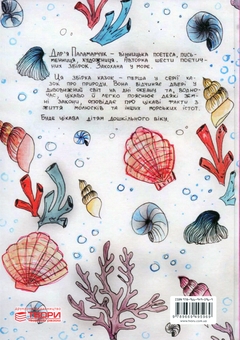 Дар'я Паламарчук – вінницька поетеса, пись-
менниця, художниця. Авторка шести поетич-
них збірок. Закохана у море.
Ця збірка казок – перша у серії ка-
зок про природу. Вона відчиняє двері у
дивовижний світ на дні океану та, водно-
час, цікаво й легко пояснює деякі зем-
ні закони, оповідає про цікаві факти з
життя молюсків та інших морських істот.
Буде цікава дітям дошкільного віку.
ТВОРИ